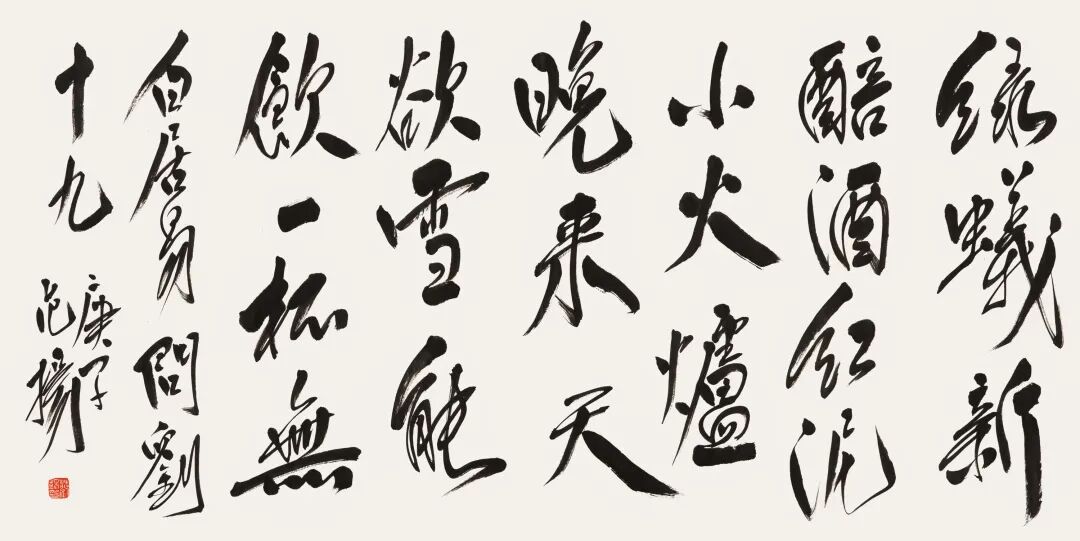 绿蟻新
醅酒红泥
小火爐
晚来天
欲雪能
飲一杯無
白居易問劉
十九
庚子
范揚